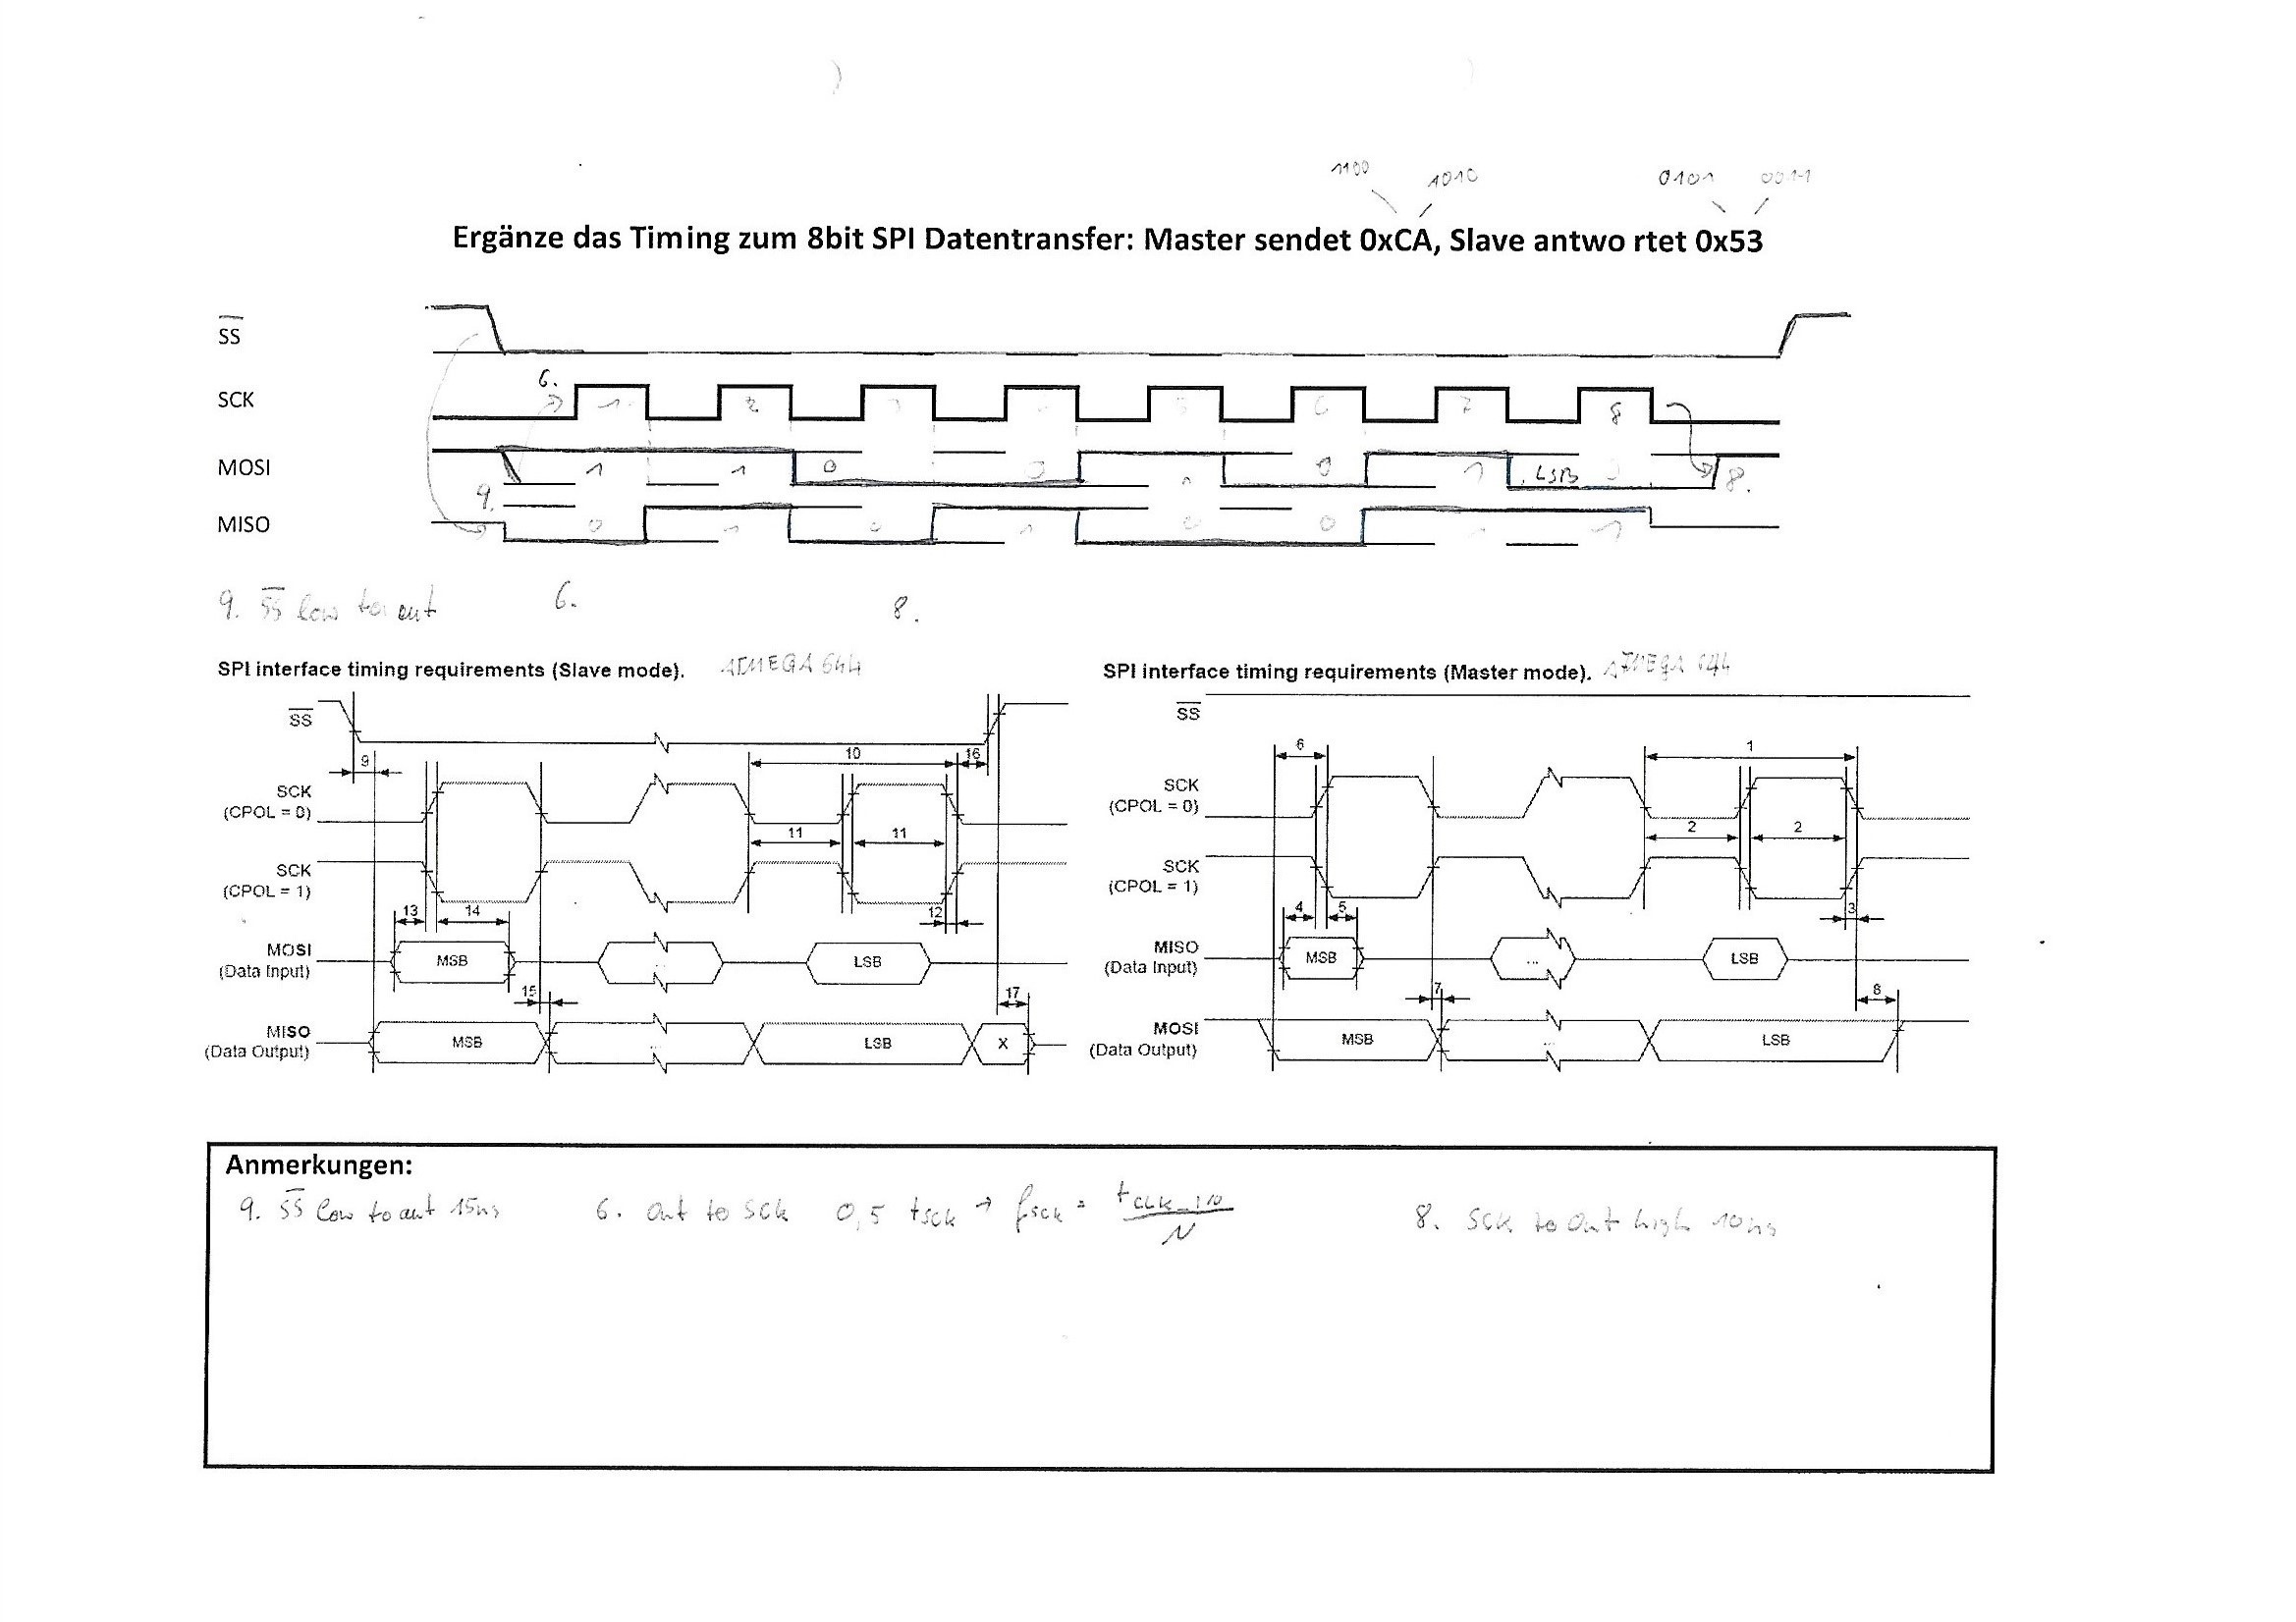 1100 1010 0101 0011
Ergänze das Timing zum 8bit SPI Datentransfer: Master sendet 0xCA, Slave antwo rtet 0x53
SS
6.
SCK 1 2 3 4 5 6 7 8
MOSI 1 1 0 0 1 0 1 LSB 0 8.
9.
MISO 0 1 0 1 0 0 1 1
9. SS low to out 6. 8.
SPI interface timing requirements (Slave mode). ATMEGA 644
SS
9 10 16
SCK
(CPOL = 0)
11 11
SCK
(CPOL = 1)
13 14 12
MOSI
(Data Input)
MSB ... LSB
15 17
MISO
(Data Output)
MSB ... LSB X
SPI interface timing requirements (Master mode). ATMEGA 644
SS
6 1
SCK
(CPOL = 0)
2 2
SCK
(CPOL = 1)
4 5 3
MISO
(Data Input)
MSB ... LSB
7 8
MOSI
(Data Output)
MSB ... LSB
Anmerkungen:
9. SS low to out 15ns 6. Out to SCK 0,5 tsck → fsck = fCLK_I/O / N 8. SCK to Out high 10ns